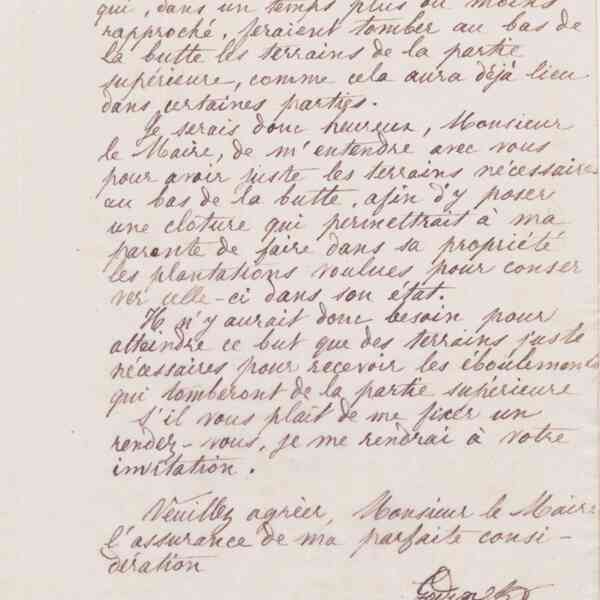 qui, dans un temps plus ou moins
rapproché, feraient tomber au bas de
la butte les terrains de la partie
supérieure, comme cela aura déjà lieu
dans certaines parties.
Je serais donc heureux, Monsieur
le Maire, de m'entendre avec vous
pour avoir juste les terrains nécessaires
au bas de la butte, afin d'y poser
une cloture qui permettrait à ma
parente de faire dans sa propriété
les plantations voulues pour conser
ver celle-ci dans son état.
Il n'y aurait donc besoin pour
atteindre ce but que des terrains juste
nécessaires pour recevoir les éboulements
qui tomberont de la partie supérieure
S'il vous plait de me fixer un
rendez-vous, je me rendrai à votre
invitation.
Veuillez agréer, Monsieur le Maire
l'assurance de ma parfaite consi-
dération